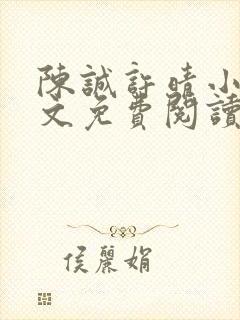 陳誠許晴小
文免費閱讀
侯麗娟